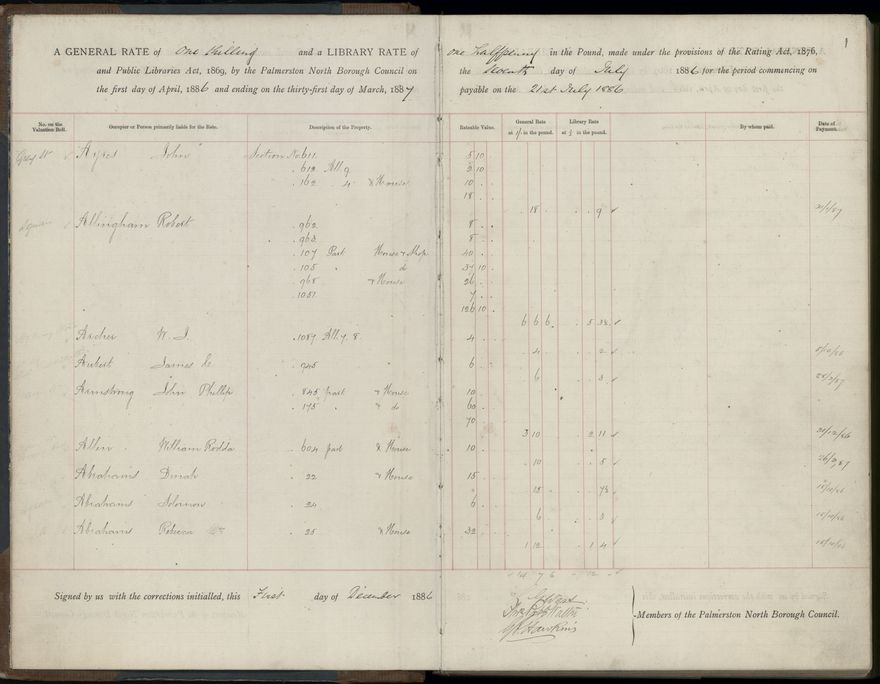 A GENERAL RATE of One Shilling and a LIBRARY RATE of one halfpenny in the Pound, made under the provisions of the Rating Act, 1876,
1
and Public Libraries Act, 1869, by the Palmerston North Borough Council on the day of July 1886 for the period commencing on
the first day of April, 1886 and ending on the thirty-first day of March, 1887 payable on the 21st July 1886
No. on the Valuation Roll. Occupier or Person primarily liable for the Rate. Description of the Property. Rateable Value. General Rate at 1/- in the pound. Library Rate at ½ in the pound. By whom paid. Date of Payment.
John Section No. 611 5 10
612 All. 9 2 10
162 4 & House 10
18
18 9
Allingham Robert 962 8
963 8
107 Part House & Shop 40
105 " do 37 10
968 & House 26
1051 7
126 10
6 6 6 5 3½
Archer W. J. 1087 All. 7. 8 4
4 2
James 745 6
6 3
Armstrong John Phillip 845 part & House 10
175 " & do 60
70
3 10 2 11 21/12/86
Allen William Rodda 604 part & House 10
10 5
Abrahams Dinah 22 & House 15
15 7½
Abrahams Solomon 24 6
6 3
Abrahams Rebecca 25 & House 32
1 12 1 4
14 7 6 12
Signed by us with the corrections initialled, this First day of December 1886
Members of the Palmerston North Borough Council.
Hawkins